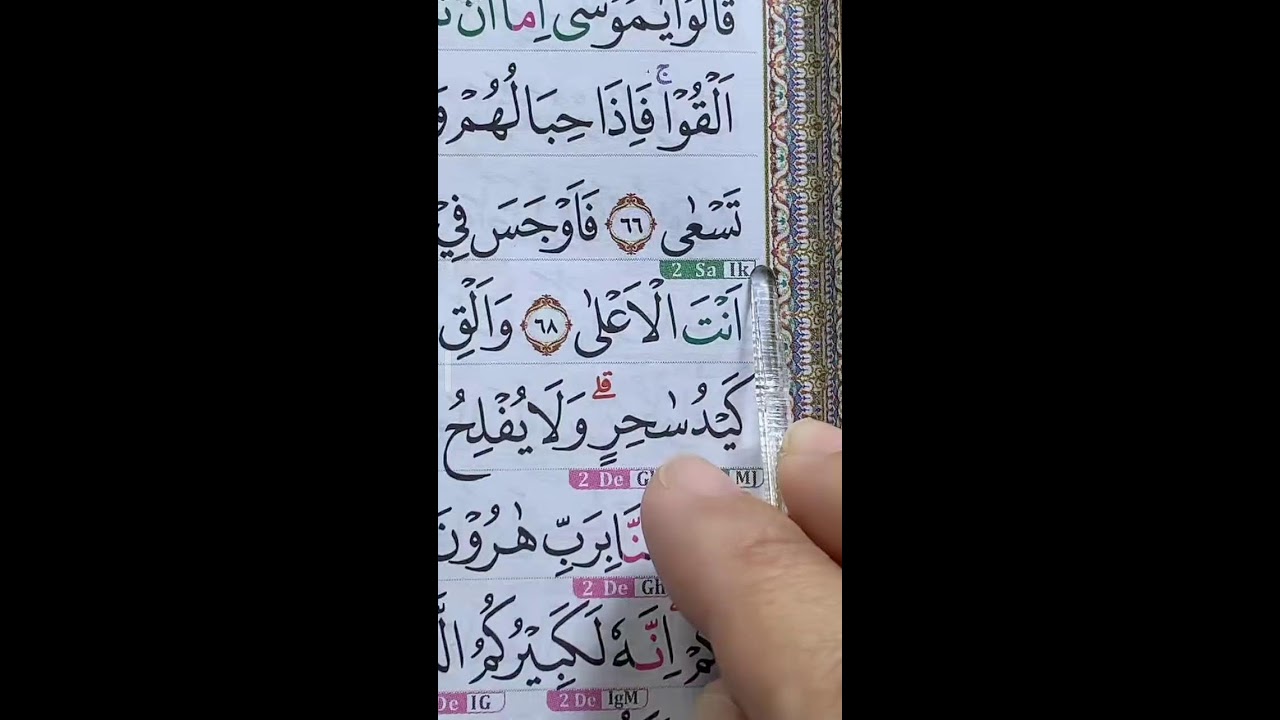 قَالُوْا يٰمُوْسٰٓى اِمَّآ اَنْ
اَلْقُوْاۚ فَاِذَا حِبَالُهُمْ
تَسْعٰى ٦٦ فَاَوْجَسَ فِيْ
2 Sa Ik
اَنْتَ الْاَعْلٰى ٦٨ وَاَلْقِ
كَيْدُ سٰحِرٍۗ وَلَا يُفْلِحُ
2 De MJ
بِرَبِّ هٰرُوْنَ
2 De Gh
اِنَّهٗ لَكَبِيْرُكُمُ
De IG 2 De IgM